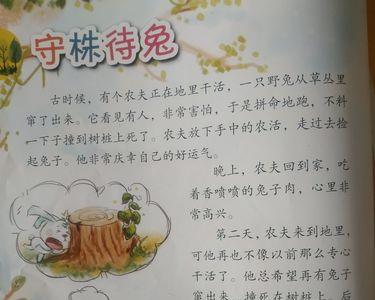 守株待兔
古时候，有个农夫正在地里干活，一只野兔从草丛里
窜了出来。它看见有人，非常害怕，于是拼命地跑，不料
一下子撞到树桩上死了。农夫放下手中的农活，走过去捡
起兔子。他非常庆幸自己的好运气。
晚上，农夫回到家，吃
着香喷喷的兔子肉，心里非
常高兴。
第二天，农夫来到地里，
可他再也不像以前那么专心
干活了。他总希望再有兔子
窜出来，撞死在树桩上。后